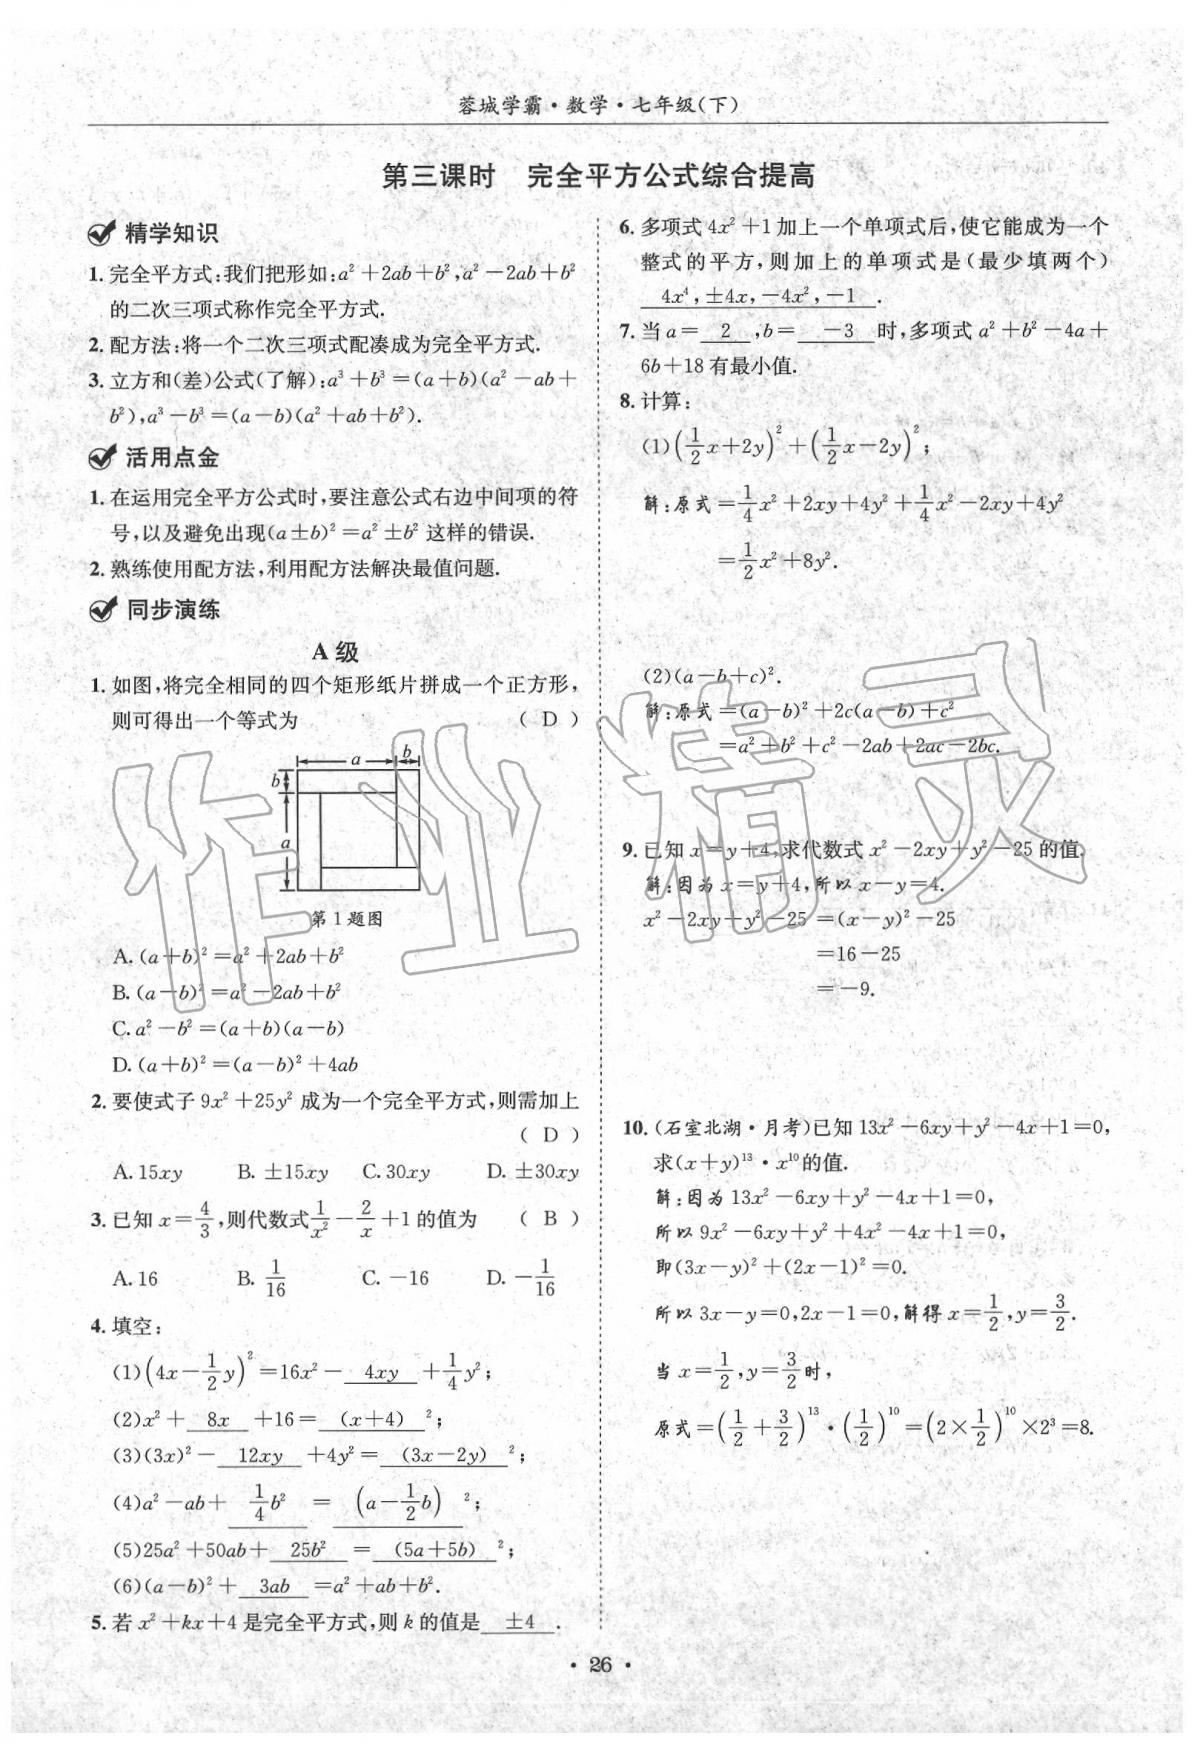 蓉城学霸·数学·七年级(下)
第三课时 完全平方公式综合提高
精学知识
1. 完全平方式:我们把形如:a²+2ab+b²,a²-2ab+b²
的二次三项式称作完全平方式.
2. 配方法:将一个二次三项式配凑成为完全平方式.
3. 立方和(差)公式(了解):a³+b³=(a+b)(a²-ab+
b²),a³-b³=(a-b)(a²+ab+b²).
活用点金
1. 在运用完全平方公式时,要注意公式右边中间项的符
号,以及避免出现(a±b)²=a²±b² 这样的错误.
2. 熟练使用配方法,利用配方法解决最值问题.
同步演练
A级
1. 如图,将完全相同的四个矩形纸片拼成一个正方形,
则可得出一个等式为 ( D )
a b
b
a
第1题图
A. (a+b)²=a²+2ab+b²
B. (a-b)²=a²-2ab+b²
C. a²-b²=(a+b)(a-b)
D. (a+b)²=(a-b)²+4ab
2. 要使式子 9x²+25y² 成为一个完全平方式,则需加上
( D )
A. 15xy B. ±15xy C. 30xy D. ±30xy
3. 已知 x=4/3,则代数式 1/x²-2/x+1 的值为 ( B )
A. 16 B. 1/16 C. -16 D. -1/16
4. 填空:
(1)(4x-1/2y)²=16x²- 4xy +1/4y²;
(2)x²+ 8x +16= (x+4) ²;
(3)(3x)²- 12xy +4y²= (3x-2y) ²;
(4)a²-ab+ 1/4b² = (a-1/2b) ²;
(5)25a²+50ab+ 25b² = (5a+5b) ²;
(6)(a-b)²+ 3ab =a²+ab+b².
5. 若 x²+kx+4 是完全平方式,则 k 的值是 ±4 .
6. 多项式 4x²+1 加上一个单项式后,使它能成为一个
整式的平方,则加上的单项式是(最少填两个)
4x⁴,±4x,-4x²,-1 .
7. 当 a= 2 ,b= -3 时,多项式 a²+b²-4a+
6b+18 有最小值.
8. 计算:
(1)(1/2x+2y)²+(1/2x-2y)²;
解:原式=1/4x²+2xy+4y²+1/4x²-2xy+4y²
=1/2x²+8y².
(2)(a-b+c)².
解:原式=(a-b)²+2c(a-b)+c²
=a²+b²+c²-2ab+2ac-2bc.
9. 已知 x=y+4,求代数式 x²-2xy+y²-25 的值.
解:因为 x=y+4,所以 x-y=4.
x²-2xy+y²-25=(x-y)²-25
=16-25
=-9.
10. (石室北湖·月考)已知 13x²-6xy+y²-4x+1=0,
求(x+y)¹³·x¹⁰的值.
解:因为 13x²-6xy+y²-4x+1=0,
所以 9x²-6xy+y²+4x²-4x+1=0,
即(3x-y)²+(2x-1)²=0.
所以 3x-y=0,2x-1=0,解得 x=1/2,y=3/2.
当 x=1/2,y=3/2时,
原式=(1/2+3/2)¹³·(1/2)¹⁰=(2×1/2)¹⁰×2³=8.
作业精灵
·26·